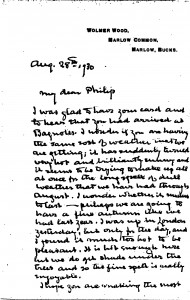 WOLMER WOOD,
MARLOW COMMON,
MARLOW, BUCKS.
Aug. 28th, 1930
My dear Philip
I was glad to have your card and
to hear that you had arrived at
Bagnoles. I wonder if you are having
the same sort of weather that we
are getting; it has suddenly turned
very hot and brilliantly sunny and
it seems to be trying to make up all
at once for the long spell of dull
weather that we have had through
August. I wonder whether it means
to last or perhaps we are going to
have a fine autumn like we
had last year. I was up in London
yesterday, but only for the day, and
I found it much too hot to be
pleasant. It is hot enough here
but we do get shade under the
trees and so the fine spell is really
enjoyable.
I hope you are making the most